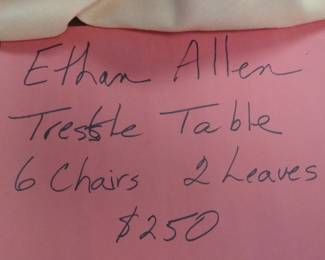 Ethan Allen
Trestle Table
6 Chairs 2 Leaves
$250